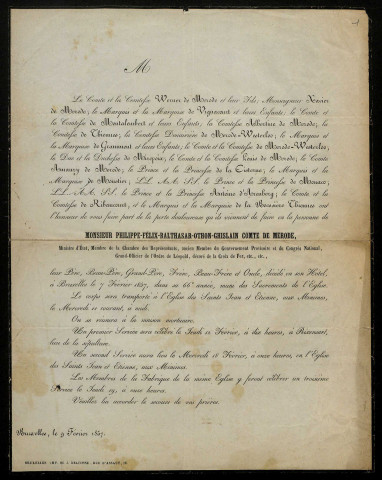 M
Le Comte et la Comtesse Werner de Merode et leur Fils; Monseigneur Xavier
de Merode; le Marquis et la Marquise de Wignacourt et leurs Enfants; le Comte et
la Comtesse de Montalembert et leurs Enfants; la Comtesse Albertine de Merode; la
Comtesse de Thiennes; la Comtesse Douairière de Merode-Westerloo; le Marquis et
la Marquise de Grammont et leurs Enfants; le Comte et la Comtesse de Merode-Westerloo,
le Duc et la Duchesse d'; le Comte et la Comtesse Louis de Merode; le Comte
Amaury de Merode, le Prince et la Princesse de la Cisterne; le Marquis et la
Marquise de Moustier, LL. AA. SS. le Prince et la Princesse de Monaco;
LL. AA. SS. le Prince et la Princesse Antoine d'Arenberg; le Comte et la
Comtesse de Ribaucourt, et le Marquis et la Marquise de la Boessière Thiennes ont
l'honneur de vous faire part de la perte douloureuse qu'ils viennent de faire en la personne de
MONSIEUR PHILIPPE-FÉLIX-BALTHASAR-OTHON-GHISLAIN COMTE DE MERODE,
Ministre d'État, Membre de la Chambre des Représentants, ancien Membre du Gouvernement Provisoire et du Congrès National,
Grand-Officier de l'Ordre de Léopold, décoré de la Croix de Fer, etc., etc.,
leur Père, Beau-Père, Grand-Père, Frère, Beau-Frère et Oncle, décédé en son Hôtel,
à Bruxelles le 7 Février 1857, dans sa 66e année, muni des Sacrements de l'Église.
Le corps sera transporté à l'Église des Saints Jean et Etienne, aux Minimes,
le Mercredi courant, à midi.
On se réunira à la maison mortuaire.
Un premier Service sera célébré le Jeudi 12 Février, à dix heures, à Rixensart,
lieu de la sépulture.
Un second Service aura lieu le Mercredi 18 Février, à onze heures, en l'Église
des Saints Jean et Etienne, aux Minimes.
Les Membres de la Fabrique de la même Église y feront célébrer un troisième
Service le Jeudi 19, à onze heures.
Veuillez lui accorder le secours de vos prières.
Bruxelles, le 9 Février 1857.
BRUXELLES. IMP. DE J. DELFOSSE, RUE